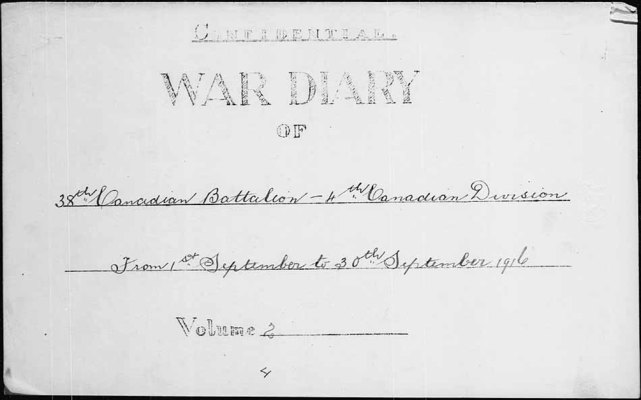 CONFIDENTIAL.
WAR DIARY
OF
38th Canadian Battalion - 4th Canadian Division
From 1st September to 30th September 1916
Volume 2
4